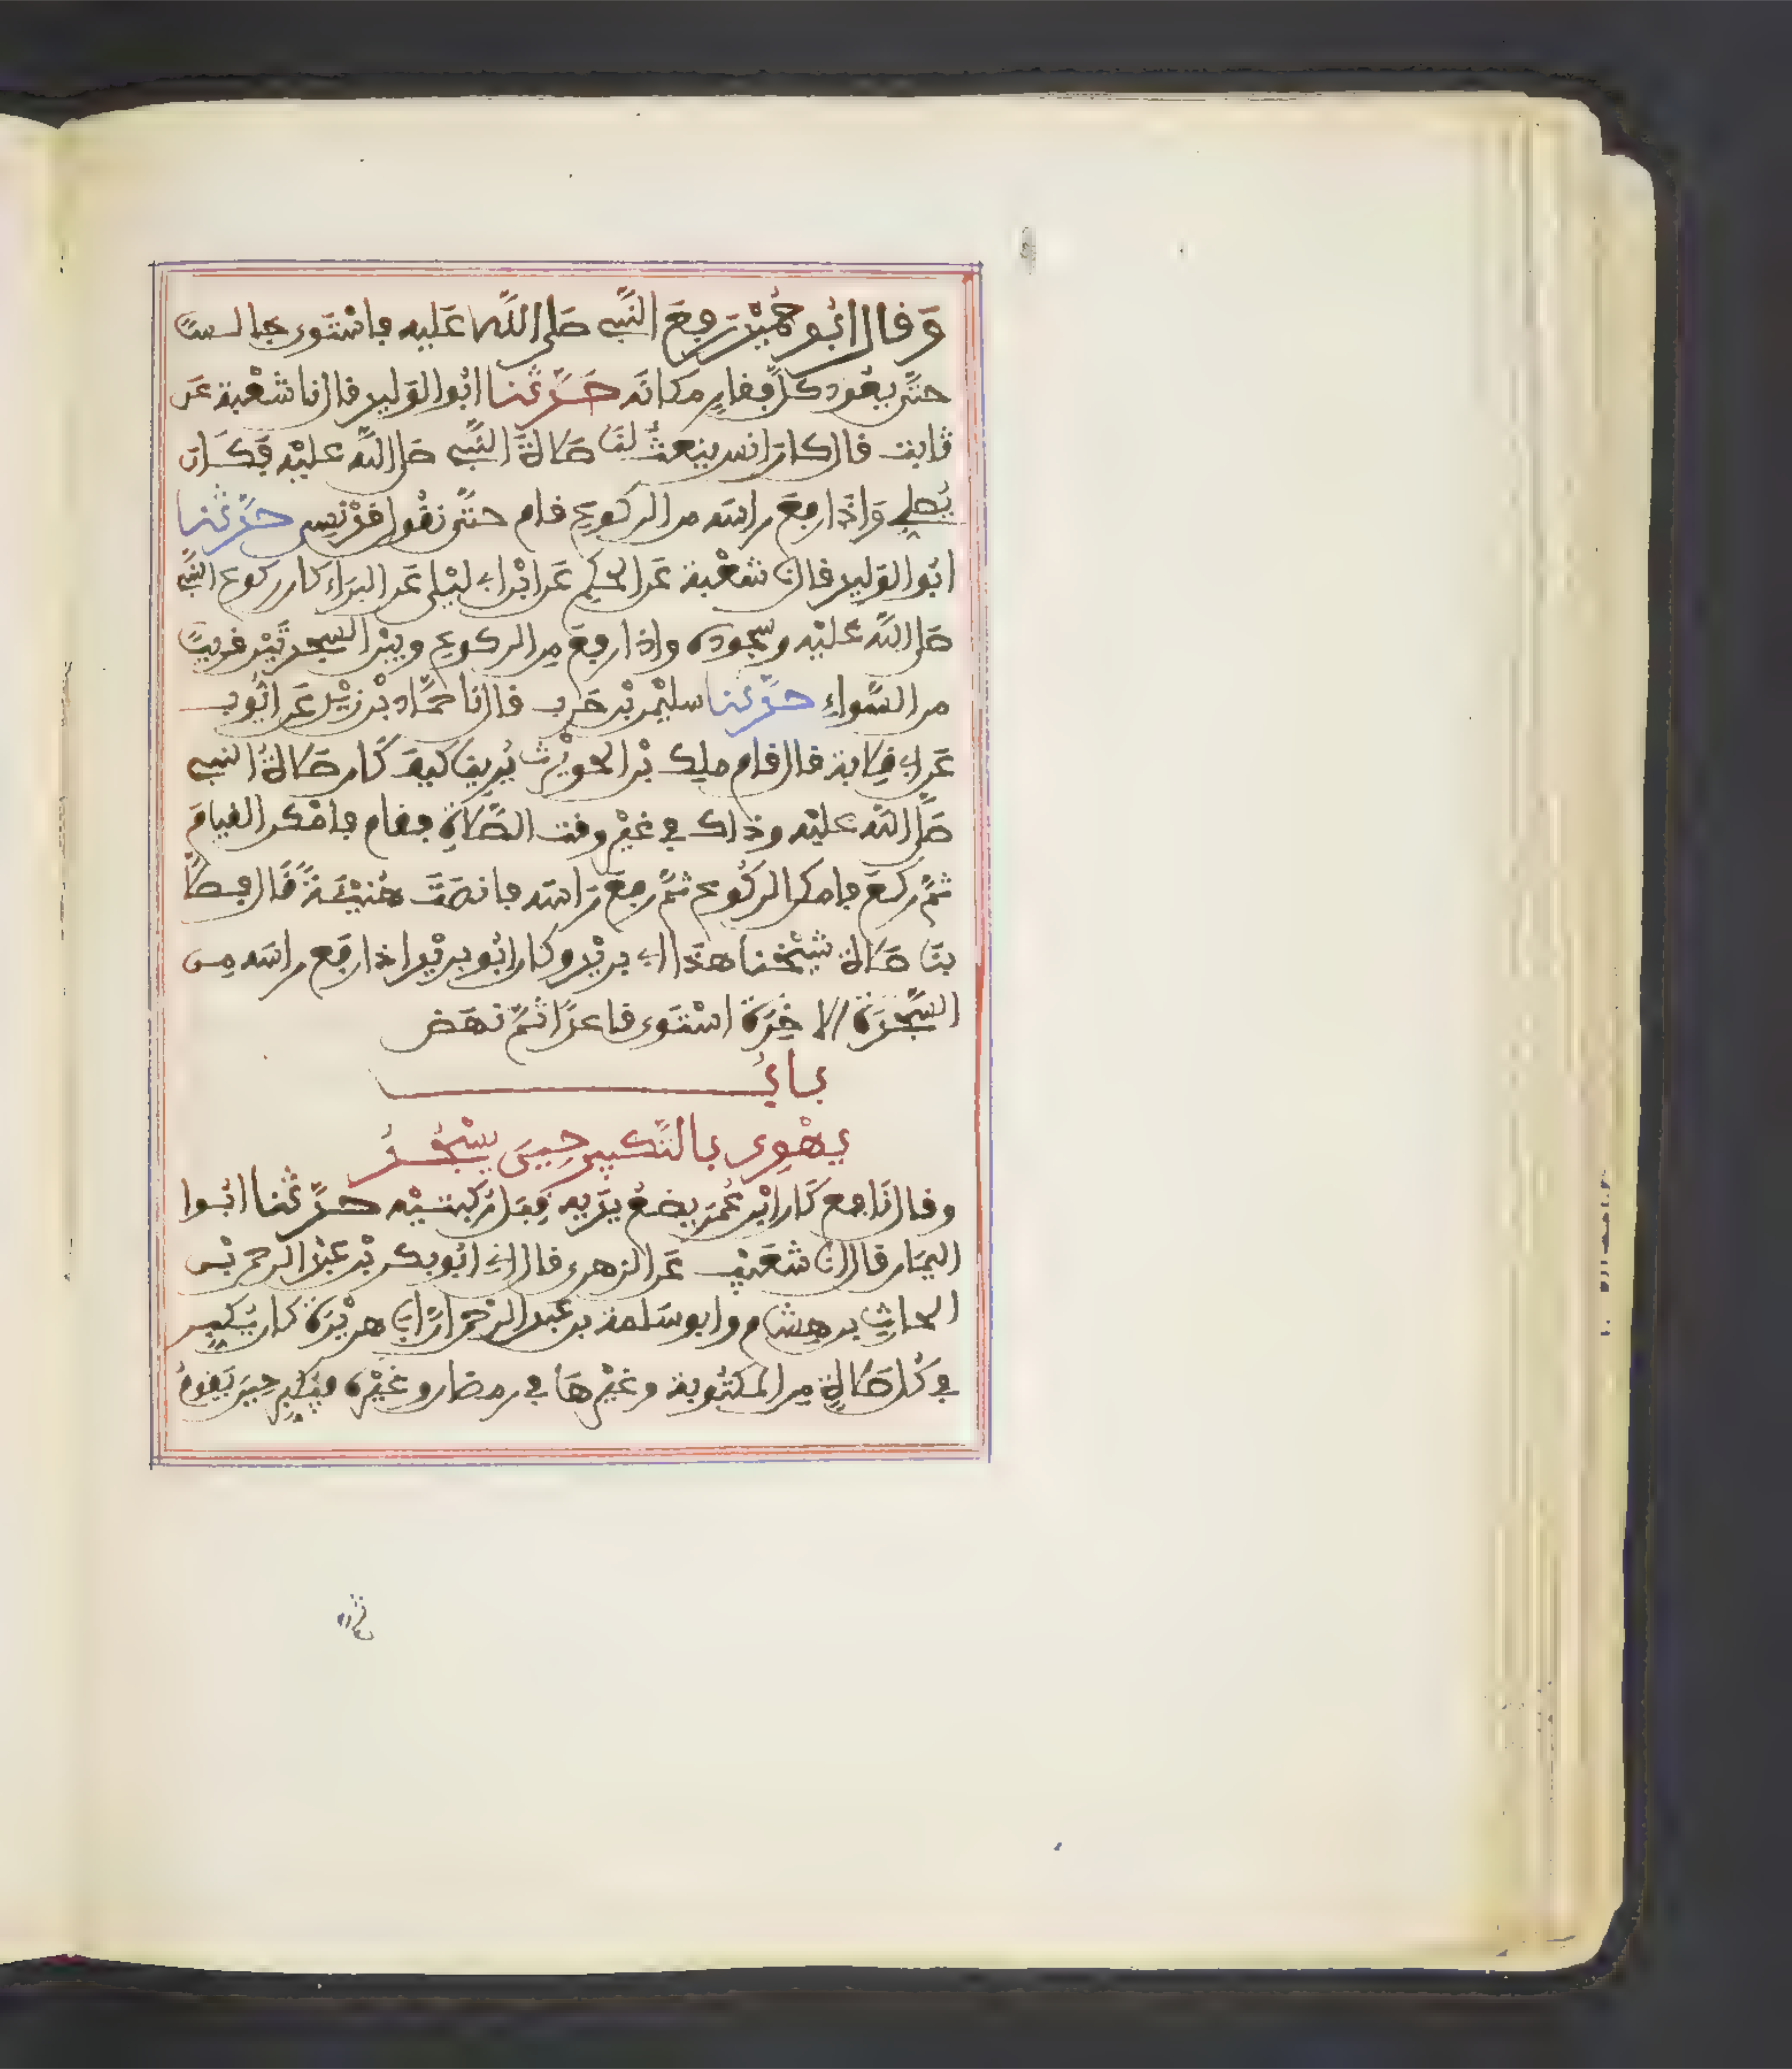 وَقال ابُو حُمَيْد رَفعَ النَّبي صَلى اللَّه عَليه فاسْتَوى جالسًا
حتَّى يعُود كلُّ فقارٍ مَكانَه حَدَّثنا ابُوا الوَليد قال نا شعْبة عَن
ثابت قال كانَ انس ينعتُ لنَا صَلاةَ النَّبي صَلى اللَّه عليْه فكَان
يُصلي وَاذَا رفعَ راسَه من الركوعِ قام حتَّى نقُول قدْ نسِي حدَّثنا
ابُوا الوَليد قال نا شعْبة عَن الحكمِ عَن ابْن ابي ليْلى عَن البرَاء كان ركوع النبَّي
صَلى اللَّه عليْه وسجودُه واذا رفعَ مِن الركوعِ وبيْن السجدتَيْن قريبًا
من السَّواءِ حدَّثنا سليْمن بْن حَرب قال نا حمَّاد بْن زيْد عَن ايُّوب
عَن ابي قِلابة قال قام ملِك بْن الحويْرث يُرينا كيفَ كَان صَلاةُ النبي
صَلَّى اللَّه عليْه وذاك في غيْر وقت الصَّلاةِ فقام فامْكن القيامَ
ثمَّ ركعَ فامكن الركُوع ثمَّ رفعَ رَاسَه فانصَتَ هُنيْئَةً قَال فصلَّى
بنَا صَلاة شيْخنا هَذا ابي بريْد وكان ابُو بريْد اذا رفَع راسَه مِن
السَّجْدَة الاخِرَة اسْتَوى قاعدًا ثمَّ نهَض
بابُ
يهْوِي بالتَّكبير حِينَ يسْجُدُ
وقال نَافع كَان ابْن عُمَر يضعُ يدَيه قبَل رُكبتيْه حدَّثنا ابُوا
اليمَان قال انا شعَيْب عَن الزهري قال اني ابُو بكر بْن عبْد الرحمن بْن
الحارثِ بن هِشام وابو سَلمة بن عَبد الرَّحمن انَّ ابي هريْرَة كان يُكبِر
في كُل صَلاةٍ مِن المكتُوبة وغيْرهَا في رمضان وغيْرِه فيُكبِر حِينَ يَقومُ